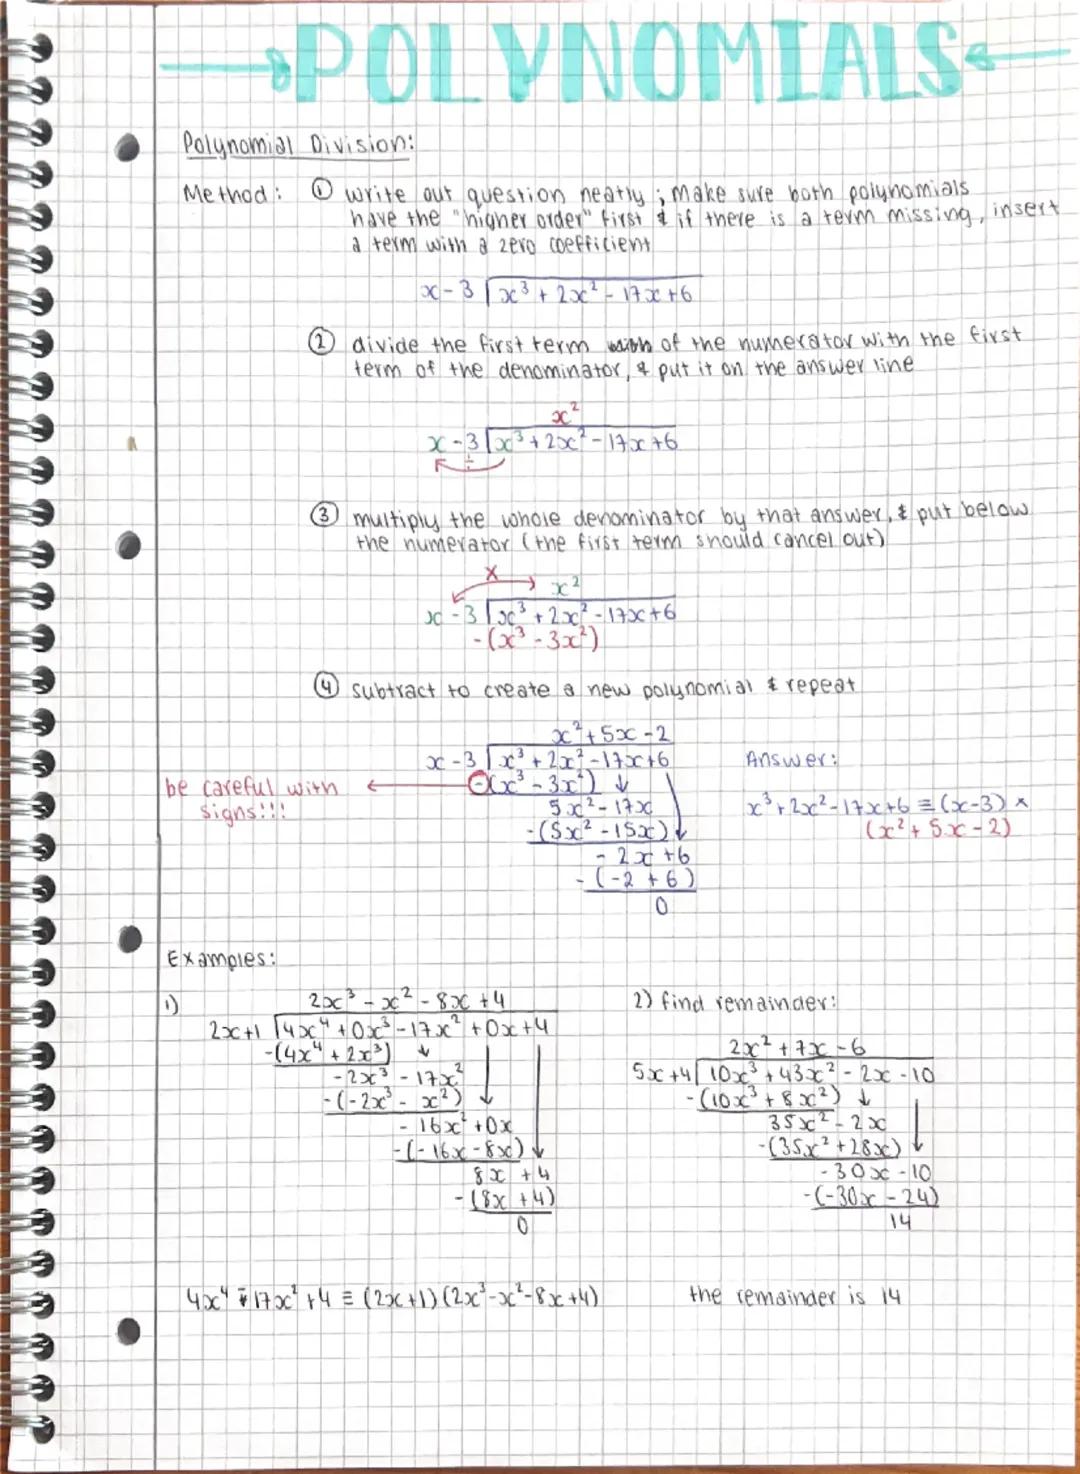 POLYNOMIALS
Polynomial Division:
Method: ① write out question neatly; make sure both polynomials
have the "higher order" first & if there is a term missing, insert
a term with a zero coefficient
x-3 | x³ + 2x² - 17x +6
② divide the first term of the numerator with the first
term of the denominator, & put it on the answer line
x²
x-3 | x³ + 2x² - 17x +6
÷
③ multiply the whole denominator by that answer, & put below
the numerator (the first term should cancel out)
x
x²
x-3 | x³ + 2x² - 17x+6
-(x³ - 3x²)
④ subtract to create a new polynomial & repeat
x² + 5x - 2
x-3 | x³ + 2x² - 17x+6
Answer:
be careful with ← -(x³ - 3x²) ↓
signs!!!
5x² - 17x
x³ + 2x² - 17x+6 ≡ (x-3) ×
-(5x² - 15x)
(x² + 5x - 2)
- 2x +6
- (-2 + 6)
0
Examples:
1)
2x³ - x² - 8x + 4
2x+1 | 4x⁴ + 0x³ - 17x² + 0x + 4
-(4x⁴ + 2x³) ↓
-2x³ - 17x²
-(-2x³ - x²) ↓
- 16x² + 0x
-(-16x - 8x) ↓
8x + 4
-(8x + 4)
0
4x⁴ - 17x² + 4 ≡ (2x+1)(2x³-x²-8x+4)
2) find remainder:
2x² + 7x - 6
5x+4 | 10x³ + 43x² - 2x - 10
-(10x³ + 8x²) ↓
35x² - 2x
-(35x² + 28x) ↓
-30x - 10
-(-30x - 24)
14
the remainder is 14